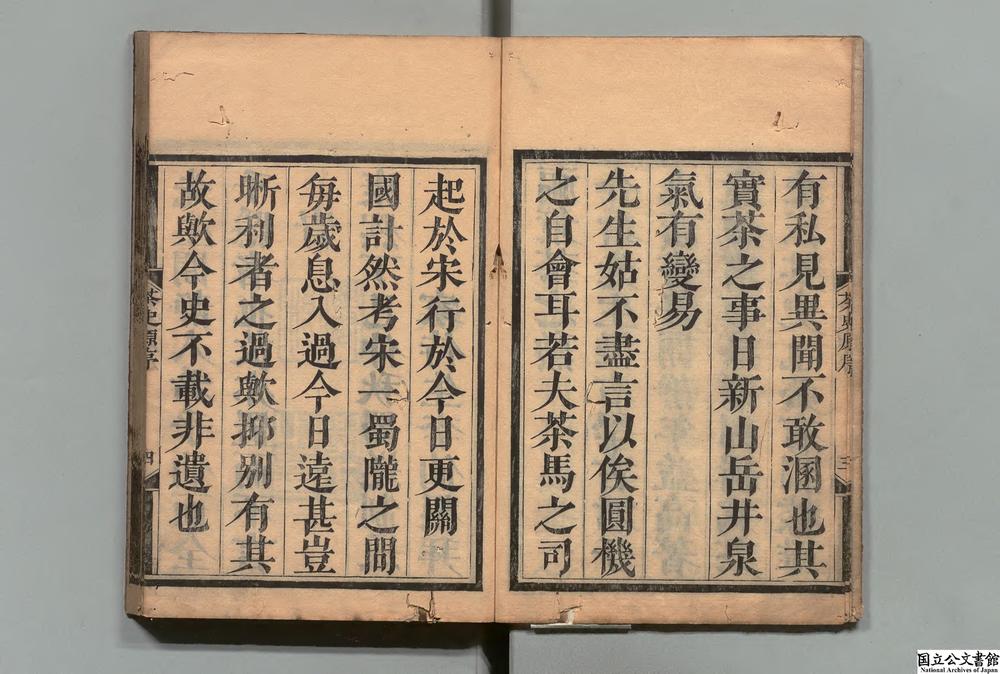 有私見異聞不敢溷也其
實茶之事日新山岳井泉
氣有變易
先生姑不盡言以俟圓機
之自會耳若夫茶馬之司
茶史原序
三
起於宋行於今日更關
國計然考宋 蜀隴之間
每歲息入過今日遠甚豈
晰利者之過歟抑别有其
故歟今史不載非遺也
茶史原序
四
国立公文書館
National Archives of Japan